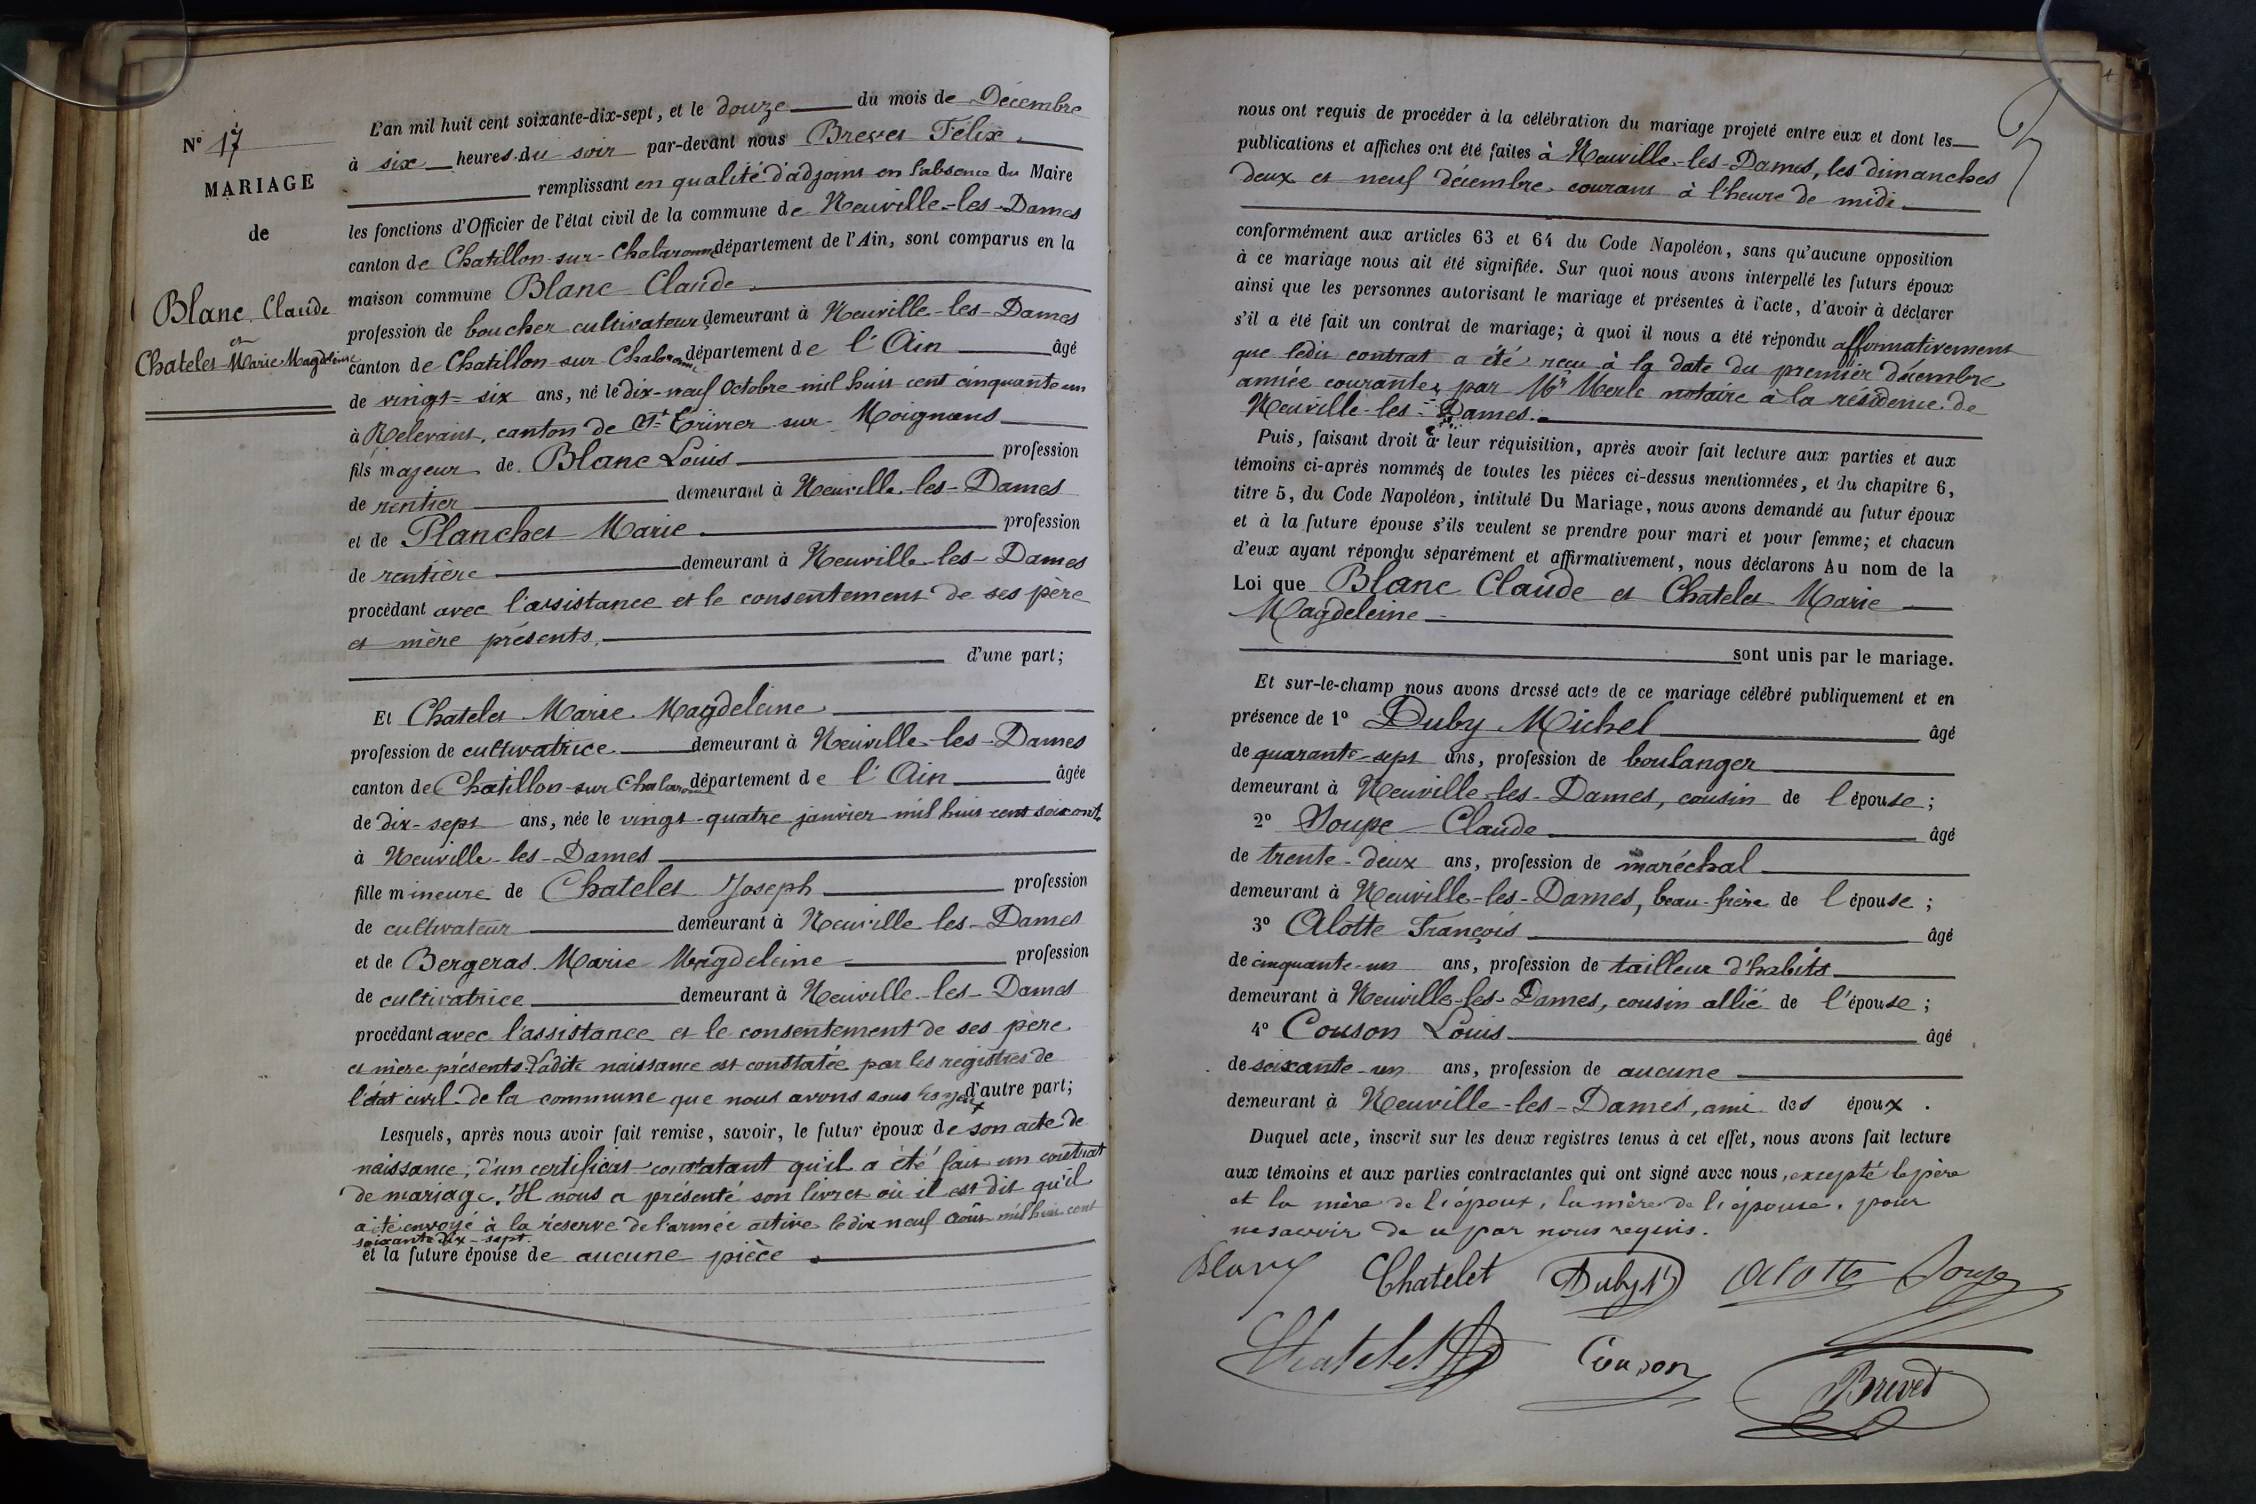 N° 17
MARIAGE
de
Blanc Claude
et
Chatelet Marie Magdeleine
L'an mil huit cent soixante-dix-sept, et le douze du mois de Décembre
à six heures du soir par-devant nous Brevet Félix
remplissant en qualité d'adjoint en l'absence du Maire
les fonctions d'Officier de l'état civil de la commune de Neuville-les-Dames
canton de Chatillon-sur-Chalaronne département de l'Ain, sont comparus en la
maison commune Blanc Claude
profession de boucher cultivateur demeurant à Neuville-les-Dames
canton de Chatillon-sur Chalaronne département de l'Ain âgé
de vingt-six ans, né le dix-neuf Octobre mil huit cent cinquante un
à Relevant, canton de St Trivier sur Moignans
fils majeur de Blanc Louis profession
de rentier demeurant à Neuville-les-Dames
et de Planchet Marie profession
de rentière demeurant à Neuville-les-Dames
procédant avec l'assistance et le consentement de ses père
et mère présents.
d'une part;
Et Chatelet Marie Magdeleine
profession de cultivatrice demeurant à Neuville-les-Dames
canton de Chatillon-sur Chalaronne département de l'Ain âgée
de dix-sept ans, née le vingt-quatre janvier mil huit cent soixante
à Neuville-les-Dames
fille mineure de Chatelet Joseph profession
de cultivateur demeurant à Neuville-les-Dames
et de Bergeras Marie Magdeleine profession
de cultivatrice demeurant à Neuville-les-Dames
procédant avec l'assistance et le consentement de ses père
et mère présents. Ladite naissance est constatée par les registres de
l'état civil de la commune que nous avons sous les yeux d'autre part;
Lesquels, après nous avoir fait remise, savoir, le futur époux de son acte de
naissance, d'un certificat constatant qu'il a été fait un contrat
de mariage. Il nous a présenté son livret où il est dit qu'il
a été envoyé à la réserve de l'armée active le dix neuf Août mil huit cent
soixante dix-sept.
et la future épouse de aucune pièce
nous ont requis de procéder à la célébration du mariage projeté entre eux et dont les
publications et affiches ont été faites à Neuville-les-Dames, les dimanches
deux et neuf décembre courant à l'heure de midi
conformément aux articles 63 et 64 du Code Napoléon, sans qu'aucune opposition
à ce mariage nous ait été signifiée. Sur quoi nous avons interpellé les futurs époux
ainsi que les personnes autorisant le mariage et présentes à l'acte, d'avoir à déclarer
s'il a été fait un contrat de mariage; à quoi il nous a été répondu affirmativement
que ledit contrat a été reçu à la date du premier décembre
année courante, par Mr Merle notaire à la résidence de
Neuville-les-Dames.
Puis, faisant droit à leur réquisition, après avoir fait lecture aux parties et aux
témoins ci-après nommés de toutes les pièces ci-dessus mentionnées, et du chapitre 6,
titre 5, du Code Napoléon, intitulé Du Mariage, nous avons demandé au futur époux
et à la future épouse s'ils veulent se prendre pour mari et pour femme; et chacun
d'eux ayant répondu séparément et affirmativement, nous déclarons Au nom de la
Loi que Blanc Claude et Chatelet Marie
Magdeleine
sont unis par le mariage.
Et sur-le-champ nous avons dressé acte de ce mariage célébré publiquement et en
présence de 1° Duby Michel âgé
de quarante-sept ans, profession de boulanger
demeurant à Neuville-les-Dames, cousin de l'épouse;
2° Soupe Claude âgé
de trente-deux ans, profession de maréchal
demeurant à Neuville-les-Dames, beau-frère de l'épouse;
3° Alotte François âgé
de cinquante-un ans, profession de tailleur d'habits
demeurant à Neuville-les-Dames, cousin allié de l'épouse;
4° Couson Louis âgé
de soixante-un ans, profession de aucune
demeurant à Neuville-les-Dames, ami des époux.
Duquel acte, inscrit sur les deux registres tenus à cet effet, nous avons fait lecture
aux témoins et aux parties contractantes qui ont signé avec nous, excepté le père
et la mère de l'époux, la mère de l'épouse, pour
ne savoir de ce par nous requis.
Blanc Chatelet Duby Alotte Soupe
Chatelet Couson Brevet